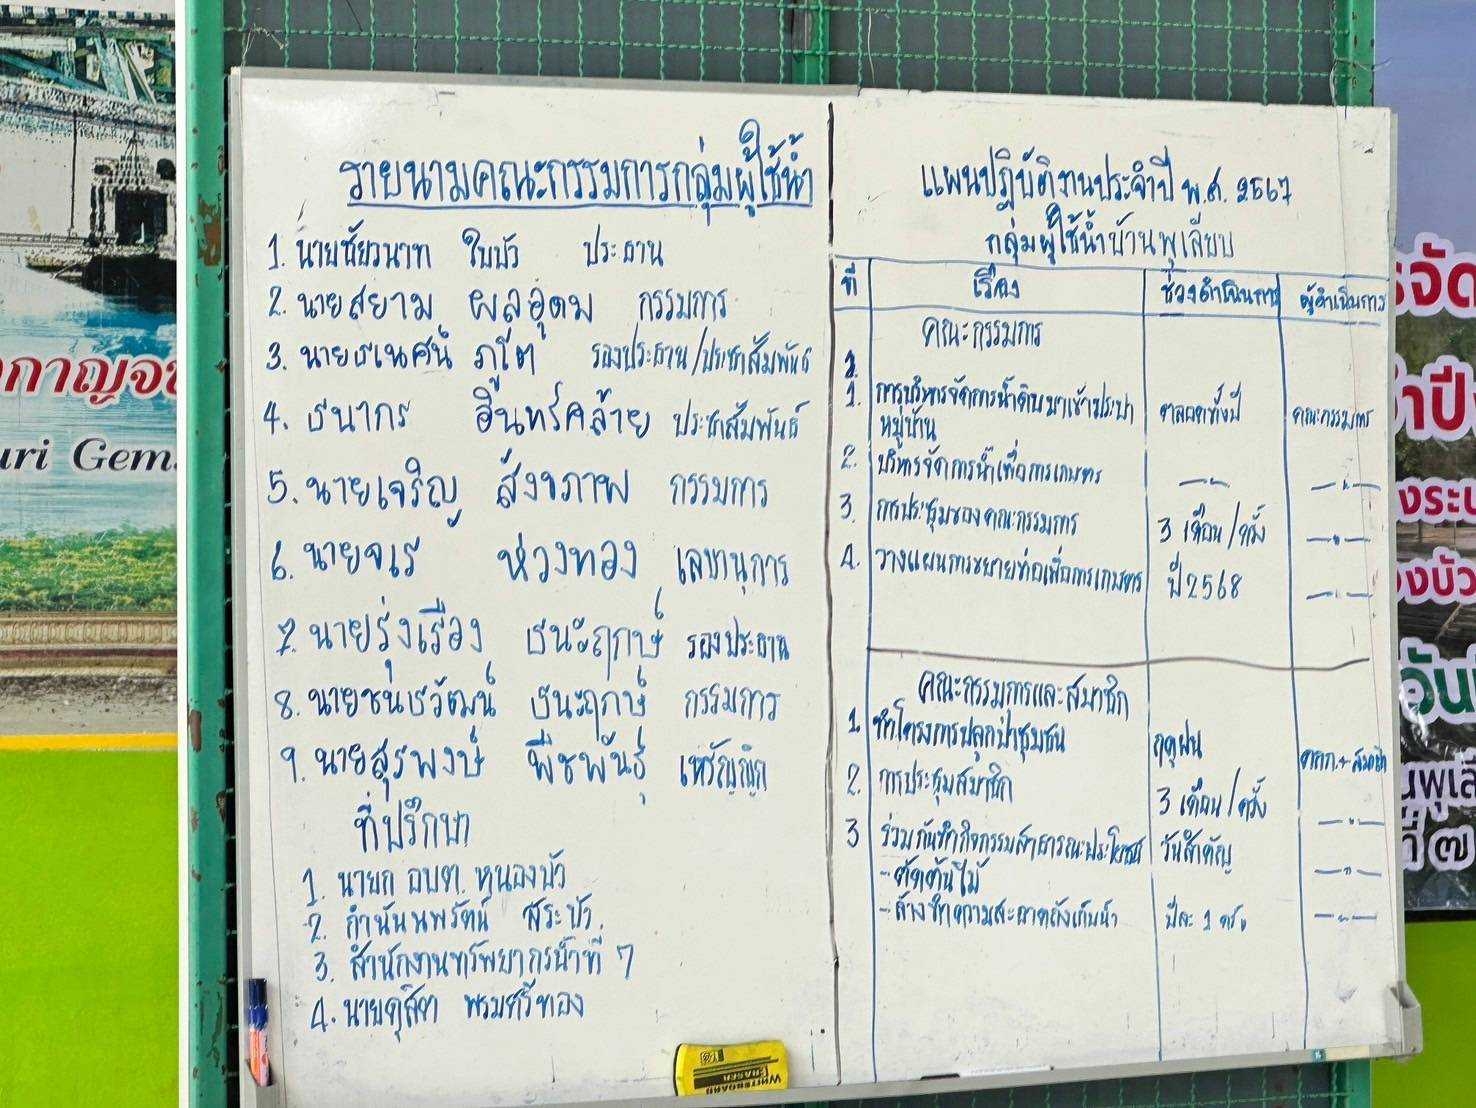 รายนามคณะกรรมการกลุ่มผู้ใช้น้ำ
1. นายชัยวนาท ใบบัว ประธาน
2. นายสยาม ผลอุดม กรรมการ
3. นายธเนศน์ ภูโต รองประธาน/ประชาสัมพันธ์
4. ธนากร อินทร์คล้าย ประชาสัมพันธ์
5. นายเจริญ สังขภาพ กรรมการ
6. นายจเร ห่วงทอง เลขานุการ
7. นายรุ่งเรือง ธนะฤกษ์ รองประธาน
8. นายชนธวัฒน์ ธนะฤกษ์ กรรมการ
9. นายสุรพงษ์ พืชพันธุ์ เหรัญญิก
ที่ปรึกษา
1. นายก อบต. หนองบัว
2. กำนันนพรัตน์ สระบัว
3. สำนักงานทรัพยากรน้ำที่ 7
4. นายดุสิต พรมศรีทอง
แผนปฏิบัติงานประจำปี พ.ศ. 2567
กลุ่มผู้ใช้น้ำบ้านพุเลียบ
ที่ เรื่อง ช่วงดำเนินการ ผู้ดำเนินการ
คณะกรรมการ
1. การบริหารจัดการน้ำดิบมาเข้าประปา ตลอดทั้งปี คณะกรรมการ
หมู่บ้าน
2. บริหารจัดการน้ำเพื่อการเกษตร —"— —"—
3. การประชุมของคณะกรรมการ 3 เดือน/ครั้ง —"—
4. วางแผนการขยายท่อเพื่อการเกษตร ปี 2568 —"—
คณะกรรมการและสมาชิก
1. ทำโครงการปลูกป่าชุมชน ฤดูฝน คกก.+สมาชิก
2. การประชุมสมาชิก 3 เดือน/ครั้ง —"—
3 ร่วมกันทำกิจกรรมสาธารณะประโยชน์ วันสำคัญ —"—
-ตัดต้นไม้
-ล้างทำความสะอาดถังเก็บน้ำ ปีละ 1 ครั้ง —"—
WHITEBOARD
ERASER
กาญจ
uri Gem
รจัด
ำปี
งระบ
องบัว
วัน
นพุเลี
ที่ ๗